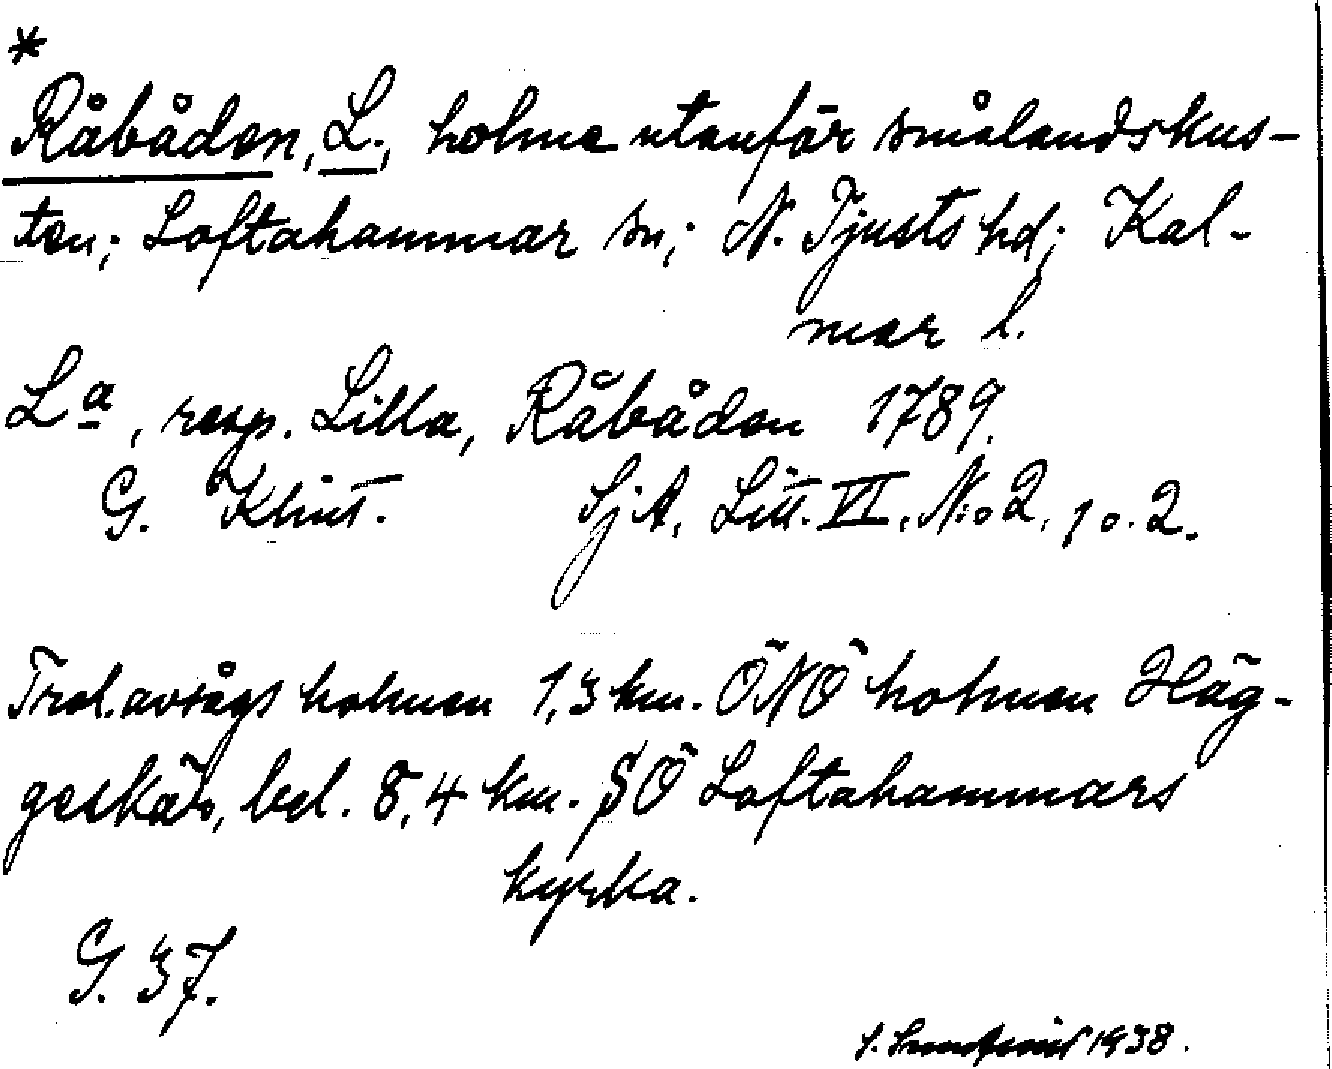 *
Råbåden, L., holme utanför smålandskus-
ten; Loftahammar sn; N. Tjusts hd; Kal-
mar l.
La, resp. Lilla, Råbåden 1789.
G. Klint. SjA, Litt. VI, No 2, 1 o. 2.
Trol. avsågs holmen 1,3 km. ÖNÖ holmen Häg-
geskär, bel. 8,4 km. SÖ Loftahammars
kyrka.
G. 37.
1938.